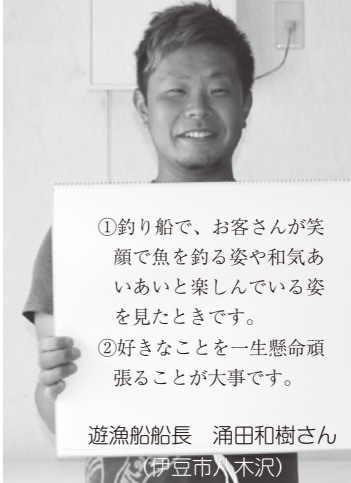 ①釣り船で、お客さんが笑
顔で魚を釣る姿や和気あ
いあいと楽しんでいる姿
を見たときです。
②好きなことを一生懸命頑
張ることが大事です。
遊漁船船長　涌田和樹さん
(伊豆市八木沢)